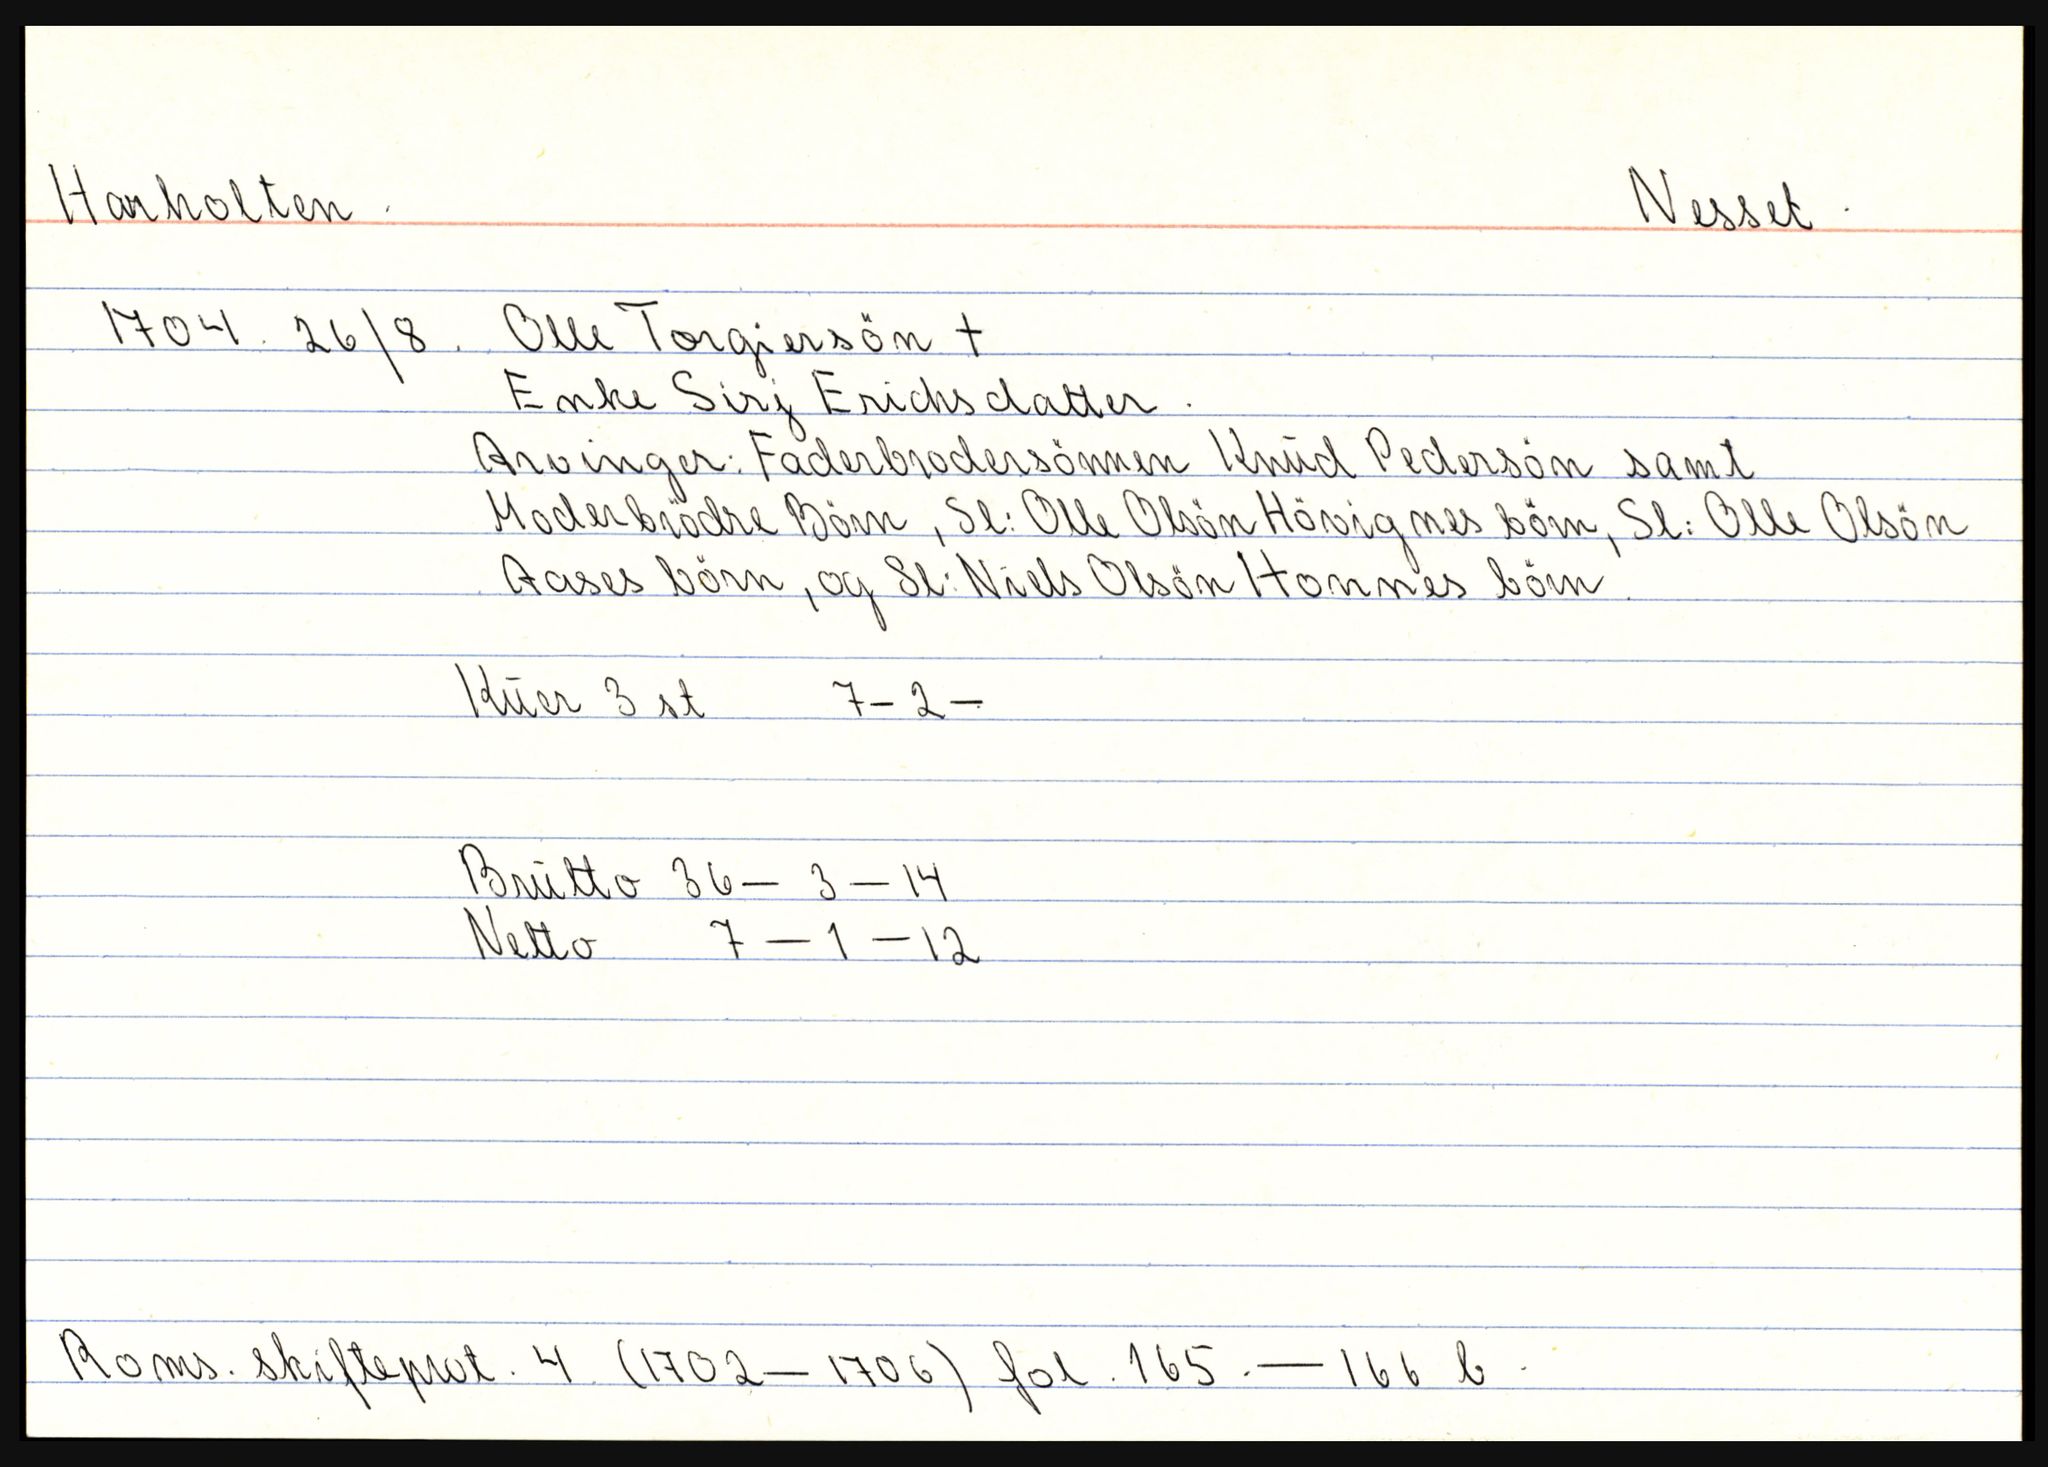 Harholten. Nesset.
1704. 26/8. Olle Torgiersön +
Enke Sirj Erichsdatter.
Arvinger: Faderbrodersönnen Knŭd Pedersön samt
Moderbrödre Börn, Sl: Olle Olsön Hövignes börn, Sl: Olle Olsön
Aases börn, og Sl: Niels Olsön Honnes börn.
Kŭer 3 st 7-2-
Brŭtto 36-3-14
Netto 7-1-12
Roms. skifteprot. 4. (1702-1706) fol. 165.-166 b.